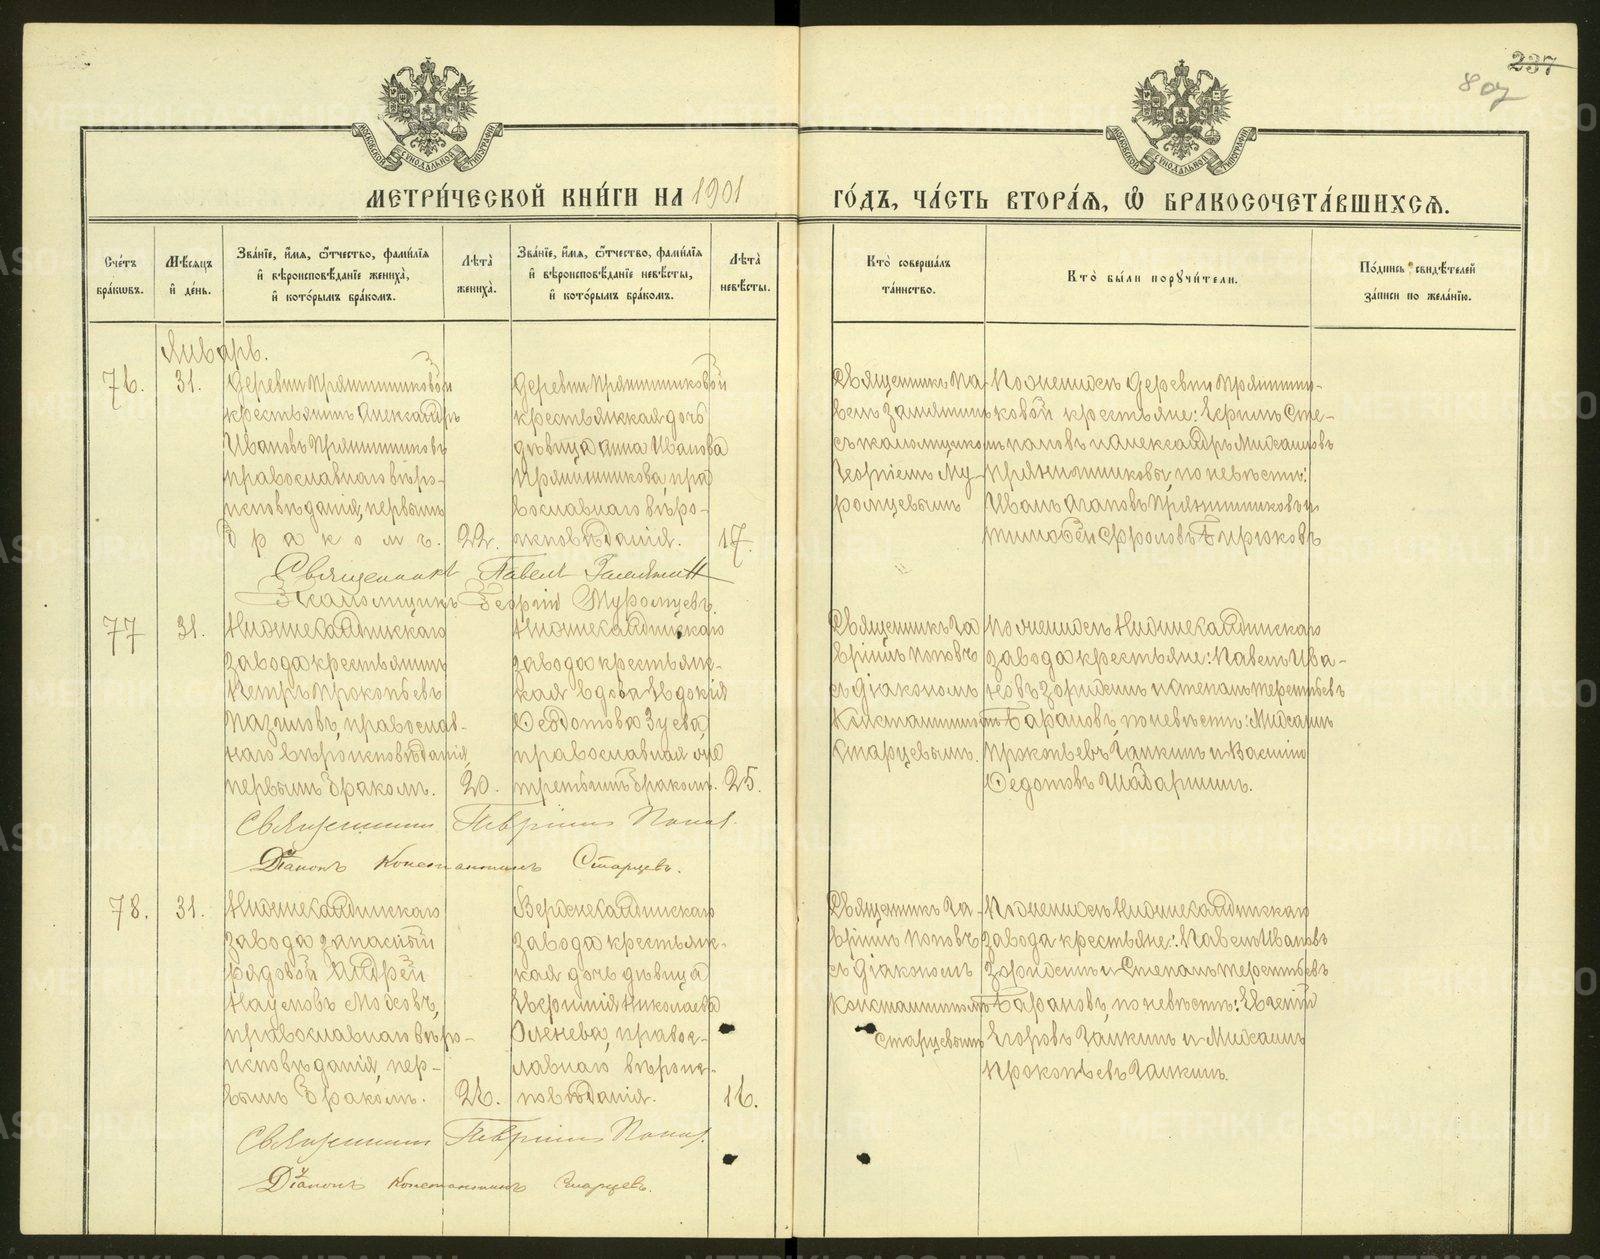 237
807
МЕТРИ́ЧЕСКОЙ КНИ́ГИ НА 1901 ГО́ДЪ, ЧА́СТЬ ВТОРА́Ѧ, Ѽ БРАКОСОЧЕТА́ВШИХСѦ.
Сче́тъ бра́кѡвъ.
Мѣ́сѧцъ и҆ де́нь.
Зва́нїе, и҆́мѧ, ѻ҆́тчество, фами́лїѧ и҆ вѣроисповѣ́данїе жениха̀, и҆ кото́рымъ бра́комъ.
Лѣта̀ жениха̀.
Зва́нїе, и҆́мѧ, ѻ҆́тчество, фами́лїѧ и҆ вѣроисповѣ́данїе невѣ́сты, и҆ кото́рымъ бра́комъ.
Лѣта̀ невѣ́сты.
Кто̀ соверша́лъ та́инство.
Кто̀ бы́ли поручи́тели.
По́дпись свидѣ́телей за́писи по жела́нїю.
Январь.
76.
31.
деревни Пряничниковой
крестьянинъ Александръ
Ивановъ Пряничниковъ
православнаго вѣро-
исповѣданія, первымъ
бракомъ.
22.
деревни Пряничниковой
крестьянская дочь
дѣвица Анна Иванова
Пряничникова, пра
вославнаго вѣро-
исповѣданія.
17.
Священникъ Па
велъ Замятинъ
съ псаломщикомъ
Георгіемъ Му-
ромцевымъ
По женихѣ деревни Пряничниковой крестьяне:
Александръ Михаиловъ
Пряничниковы, по невѣстѣ:
Иванъ Агаповъ Пряничниковъ и
Тимофей Фроловъ Бирюковъ
Священникъ Павелъ Замятинъ
Псаломщикъ Георгій Муромцевъ.
77
31.
завода крестьянинъ
Петръ Прокопьевъ
православ-
наго вѣроисповѣданія,
первымъ бракомъ.
20.
завода крестьянс-
кая вдова Евдокія
Федотова Зуева,
православная
третьимъ бракомъ.
25.
Священникъ Га
вріилъ Поповъ
съ діакономъ
Константиномъ
Старцевымъ.
завода крестьяне: Павелъ Ива-
новъ Зорихинъ и Степанъ Терентьевъ
Барановъ, по невѣстѣ: Михаилъ
Прокопьевъ Галкинъ и Василій
Федотовъ Шабаршинъ.
Священникъ Гавріилъ Поповъ.
Діаконъ Константинъ Старцевъ.
78.
31.
завода запасный
рядовой Андрей
Наумовъ
православнаго вѣро-
исповѣданія, пер-
вымъ бракомъ.
26.
завода крестьянс-
кая дочь дѣвица
Николаева
Оленева, правос-
лавнаго вѣроис-
повѣданія.
16.
Священникъ Га-
вріилъ Поповъ
съ діакономъ
Константиномъ
Старцевымъ
завода крестьяне: Павелъ Ивановъ
Зорихинъ и Степанъ Терентьевъ
Барановъ, по невѣстѣ: Евгеній
Егоровъ Галкинъ и Михаилъ
Прокопьевъ Галкинъ.
Священникъ Гавріилъ Поповъ.
Діаконъ Константинъ Старцевъ.
METRIKI.GASO-URAL.RU